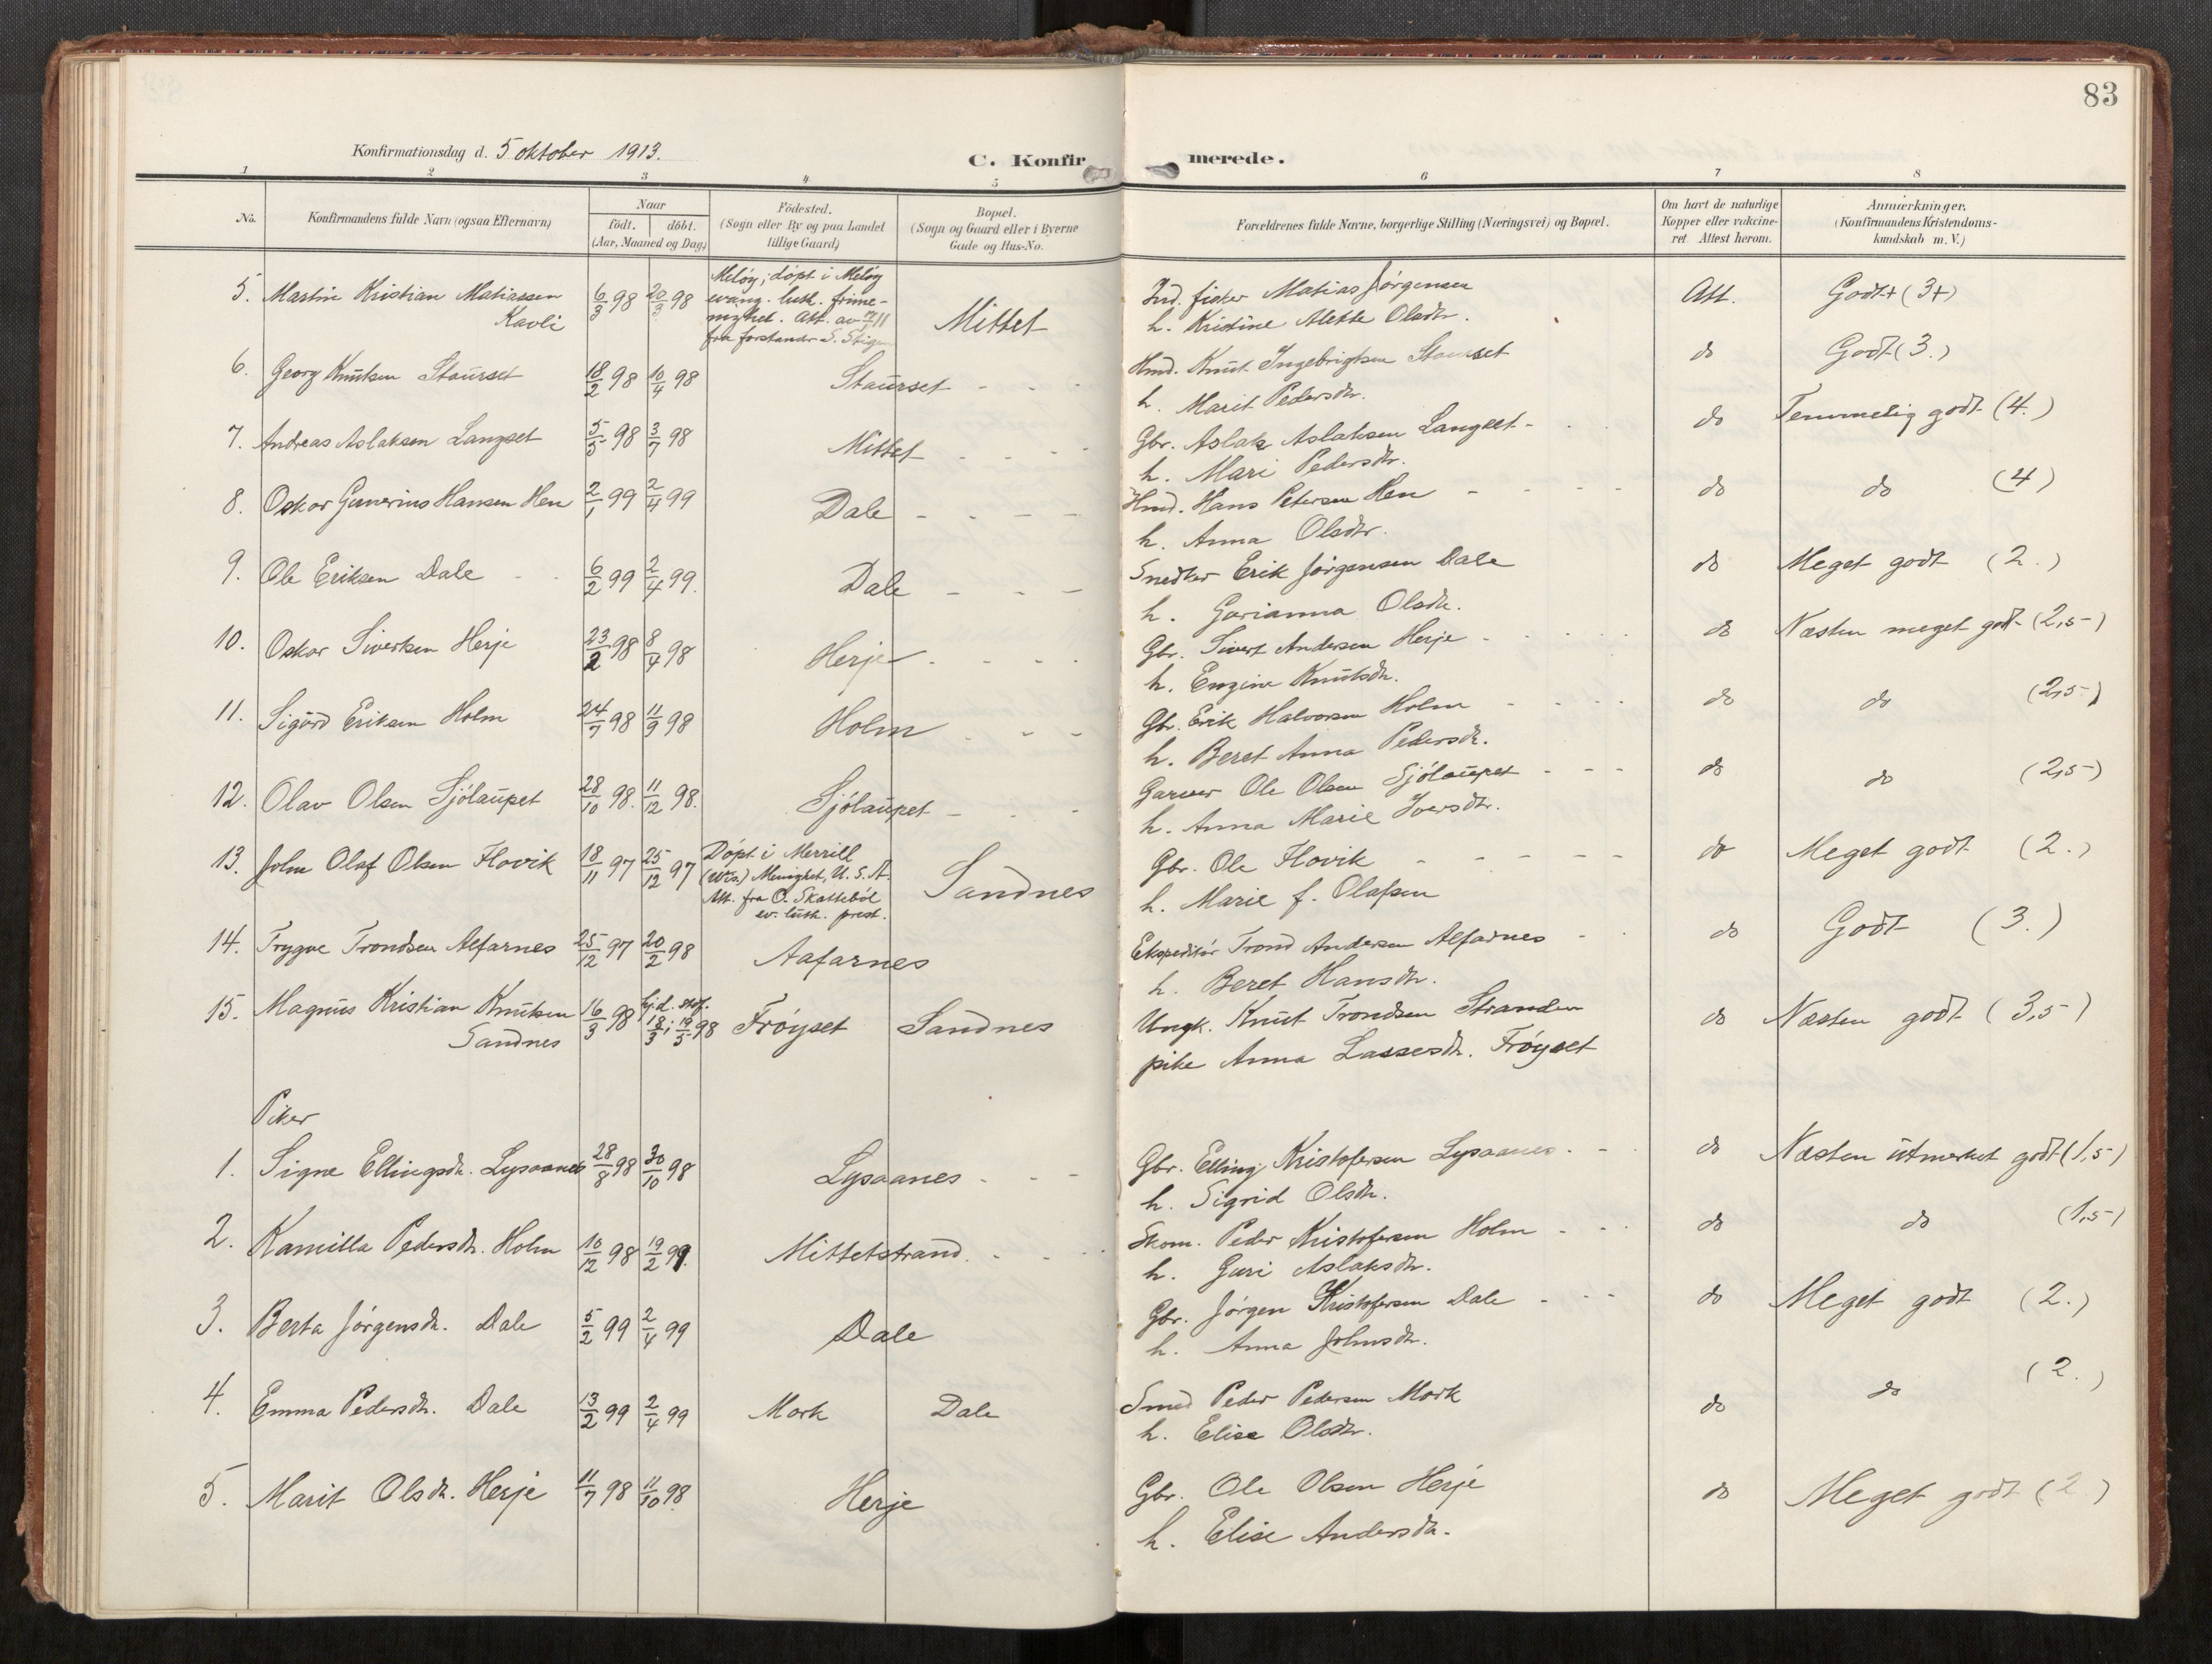 83
Konfirmationsdag d. 5 oktober 1913.
C. Konfirmerede.
1 2 3 4 5 6 7 8
No.
Konfirmandens fulde Navn (ogsaa Efternavn)
Naar
födt. döbt.
(Aar, Maaned og Dag)
Födested.
(Sogn eller By og paa Landet
tillige Gaard)
Bopæl.
(Sogn og Gaard eller i Byerne
Gade og Hus-No.
Forældrenes fulde Navne, borgerlige Stilling (Næringsvei) og Bopæl.
Om havt de naturlige
Kopper eller vakcine-
ret. Attest herom.
Anmærkninger.
(Konfirmandens Kristendoms-
kundskab m. V.)
5. Martin Kristian Matiassen
Kavli
6/3 98 20/3 98
Meløy; døpt i Meløy
evang. luth. frime-
nighet. Att. av 11
fra forstander S.
Mittet
Ind. fisker Matias Jørgensen
h. Kristine Mette Olsdtr.
Att. Godt+ (3+)
6. Georg Knutsen Staurset 18/2 98 10/4 98 Staurset - - -
Hmd. Knut Ingebrigtsen Staurset
h. Marit Pedersdtr.
do Godt (3.)
7. Andreas Aslaksen Langset 5/5 98 3/7 98 Mittet - - - -
Gbr. Aslak Aslaksen Langset -
h. Mari Pedersdtr.
do Temmelig godt (4.)
8. Oskar Gunerius Hansen Hen 2/1 99 2/4 99 Dale - - - -
Hmd. Hans Petersen Hen - - - -
h. Anna Olsdtr.
do do (4)
9. Ole Eriksen Dale 6/2 99 2/4 99. Dale - - -
Snedker Erik Jørgensen Dale
h. Gurianna Olsdtr.
do Meget godt (2.)
10. Oskar Sivertsen Herje 23/2 98 8/4 98 Herje - - - -
Gbr. Sivert Andersen Herje - - - -
h. Engine Knutsdtr.
do Næsten meget godt (2,5)
11. Sigurd Eriksen Holm 24/7 98 11/9 98 Holm - - -
Gbr. Erik Halvorsen Holm - - - -
h. Beret Anna Pedersdtr.
do do (2,5)
12. Olav Olsen Sjölaupet 28/10 98. 11/12 98. Sjölaupet - - -
Garver Ole Olsen Sjölaupet - - -
h. Anna Marie Iversdtr.
do do (2,5)
13. John Olaf Olsen Hovik 18/11 97 25/12 97
Døpt i Merrill
(Wis.) Menighet, U. S. A.
Att. fra O. Skattebøl
ev. luth. prest.
Sandnes
Gbr. Ole Hovik - - - - -
h. Marie f. Olafsen
do Meget godt (2.)
14. Trygve Trondsen Alfarnes 25/12 97 20/2 98 Aafarnes
Ekspeditør Trond Andersen Alfarnes -
h. Beret Hansdtr.
do Godt (3.)
15. Magnus Kristian Knutsen
Sandnes
16/3 98 hj.d. stadf.
18/3; 19/5 98 Frøyset Sandnes
Ungk. Knut Trondsen Stranden
pike Anna Lassesdtr. Frøyset
do Næsten godt (3,5)
Piker
1. Signe Ellingsdtr. Lysaanes 28/8 98 30/10 98 Lysaanes - - -
Gbr. Elling Kristofersen Lysaanes. -
h. Sigrid Olsdtr.
do Næsten utmerket godt (1,5)
2. Kamilla Pedersdtr. Holm 10/12 98 19/2 99. Mittetstrand. - - -
Skom. Peder Kristofersen Holm - - -
h. Guri Aslaksdtr.
do do (1,5)
3. Berta Jørgensdtr. Dale 5/2 99 2/4 99 Dale
Gbr. Jørgen Kristofersen Dale - - -
h. Anna Johnsdtr.
do Meget godt (2.)
4. Emma Pedersdtr. Dale 13/2 99 2/4 99 Mork Dale
Smed Peder Pedersen Mork
h. Elise Olsdtr.
do do (2.)
5. Marit Olsdtr. Herje 11/7 98 11/10 98 Herje
Gbr. Ole Olsen Herje
h. Elise Andersdtr.
do Meget godt (2.)